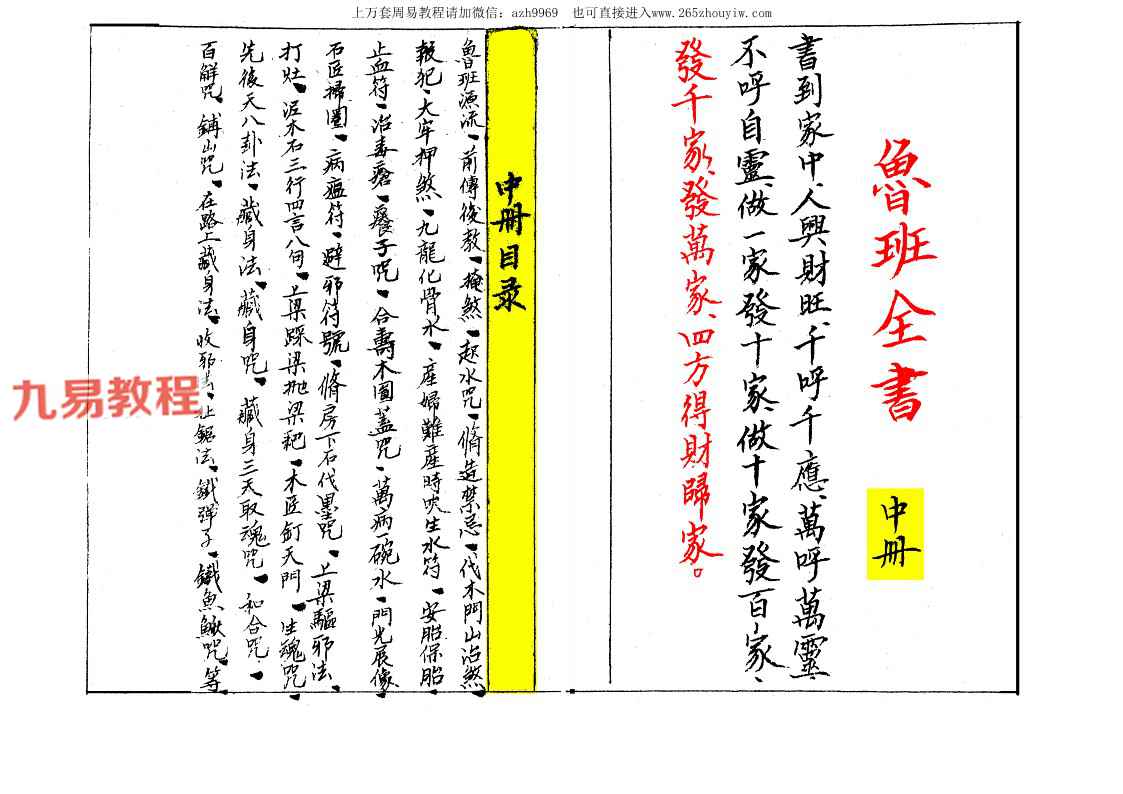 上万套周易教程请加微信：azh9969　也可直接进入www.265zhouyiw.com
魯班全書
中冊
書到家中、人興財旺、千呼千應、萬呼萬靈、
不呼自靈、做一家發十家、做十家發百家、
發千家、發萬家、四方得財歸家。
中冊目录
魯班源流、前傳後教、掩煞、起水咒、脩造禁忌、伐木門山治煞、
報犯、大牢押煞、九龍化骨水、產婦難產時吹生水符、安胎保胎、
止血符、冶毒瘡、癢子咒、合壽木圓蓋咒、萬病一碗水、門光展像、
石匠掃圍、病瘟符、避邪符號、脩房下石代墨咒、上梁驅邪法、
打灶、泥木石三行四言八句、上梁踩梁抛梁粑、木匠釘天門、生魂咒、
先後天八卦法、藏身法、藏身咒、藏身三天取魂咒、和合咒、
百解咒、鋪山咒、在路上藏身法、收邪法、止鋸法、鐵彈子、鐵魚鰍咒、等
九易教程